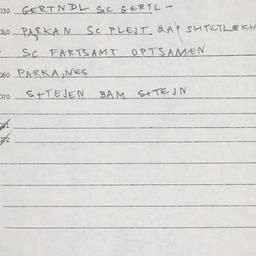 030 GERTNDL SC GERTL-
040 PARKAN SC PLEJT. dAP SHTETLEKH
SC FARTSAMT OPTSAMEN
060 PARKA,NES
070 S+TEJEN BAM S+TEJN
071
072